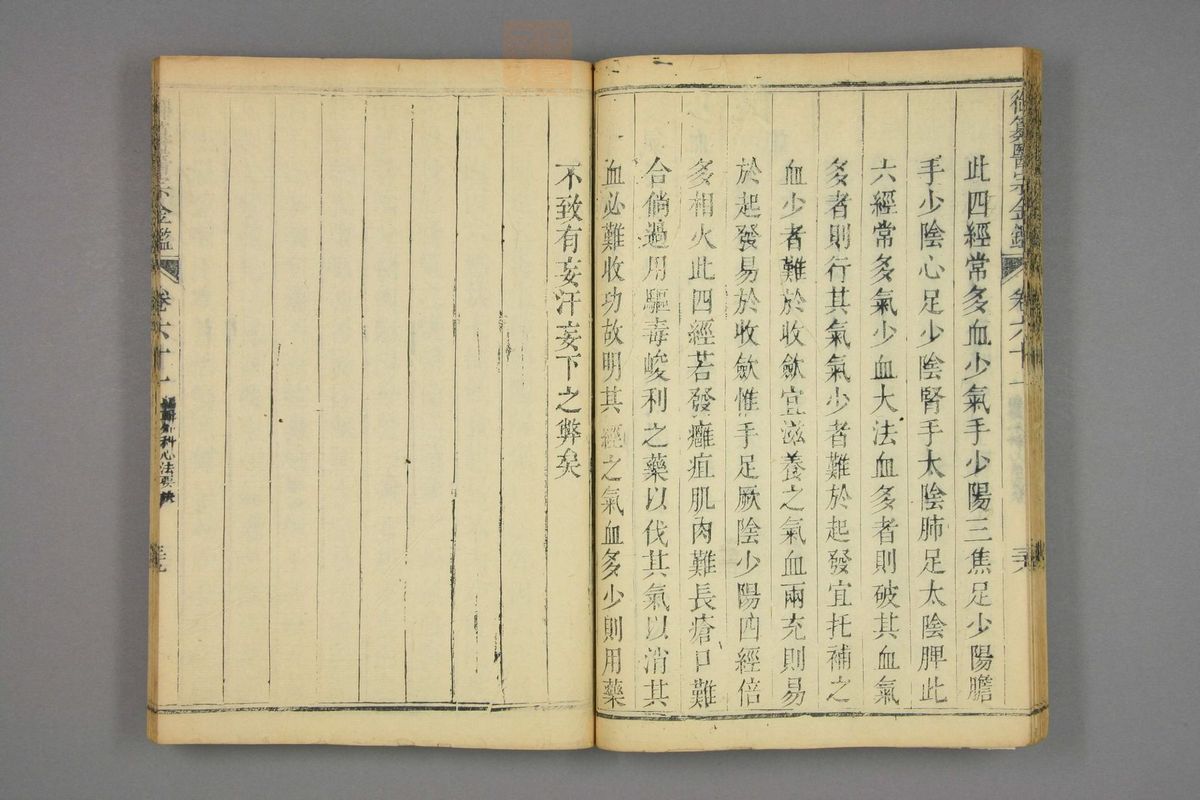 御纂醫宗金鑑
卷六十一
三六
此四經常多血少氣手少陽三焦足少陽膽
手少陰心足少陰腎手太陰肺足太陰脾此
六經常多氣少血大法血多者則破其血氣
多者則行其氣氣少者難於起發宜托補之
血少者難於收斂宜滋養之氣血兩充則易
於起發易於收斂惟手足厥陰少陽四經倍
多相火此四經若發癰疽肌肉難長瘡口難
合倘過用驅毒峻利之藥以伐其氣以消其
血必難收功故明其經之氣血多少則用藥
不致有妄汗妄下之弊矣
宗金鑑
卷六十一
外科心法要訣